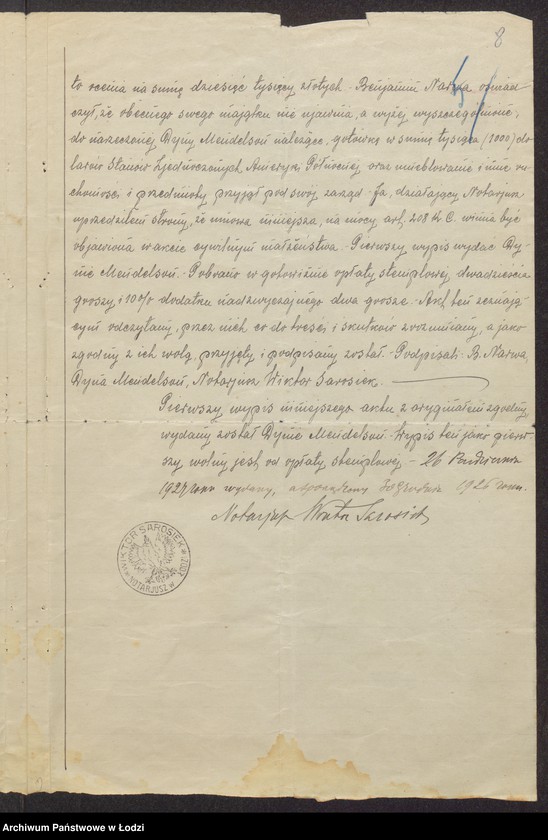 8
to ocenia na sumę dziesięć tysięcy złotych. Benjamin Narwa, oświad
czył, że obecnego swego majątku nie ujawnia, a wyżej wyszczególnione,
do narzeczonej Dyny Mendelson należące, gotówkę w sumie tysiąca (1000) do
larów Stanów Zjednoczonych Ameryki Północnej oraz umeblowanie i inne ru
chomości i przedmioty przyjął pod swój zarząd. Ja, działający Notarjusz
uprzedziłem strony, że umowa niniejsza, na mocy art. 208 K. C. winna być
objawiona w akcie cywilnym małżeństwa. Pierwszy wypis wydać Dy
nie Mendelson. Pobrano w gotowiźnie opłaty stemplowej dwadzieścia
groszy i 10% dodatku nadzwyczajnego dwa grosze. Akt ten zeznają
cym odczytany, przez nich co do treści i skutków zrozumiany, a jako
zgodny z ich wolą, przyjęty i podpisany został. Podpisali: B. Narwa,
Dyna Mendelson, Notarjusz Wiktor Sarosiek.
Pierwszy wypis niniejszego aktu z oryginałem zgodny
wydany został Dynie Mendelson. Wypis ten jako pierw
szy wolny jest od opłaty stemplowej - 26
roku wydany, a sporządzony 1926 roku.
Notarjusz Wiktor Sarosiek
WIKTOR SAROSIEK
NOTARJUSZ W ŁODZI
Archiwum Państwowe w Łodzi